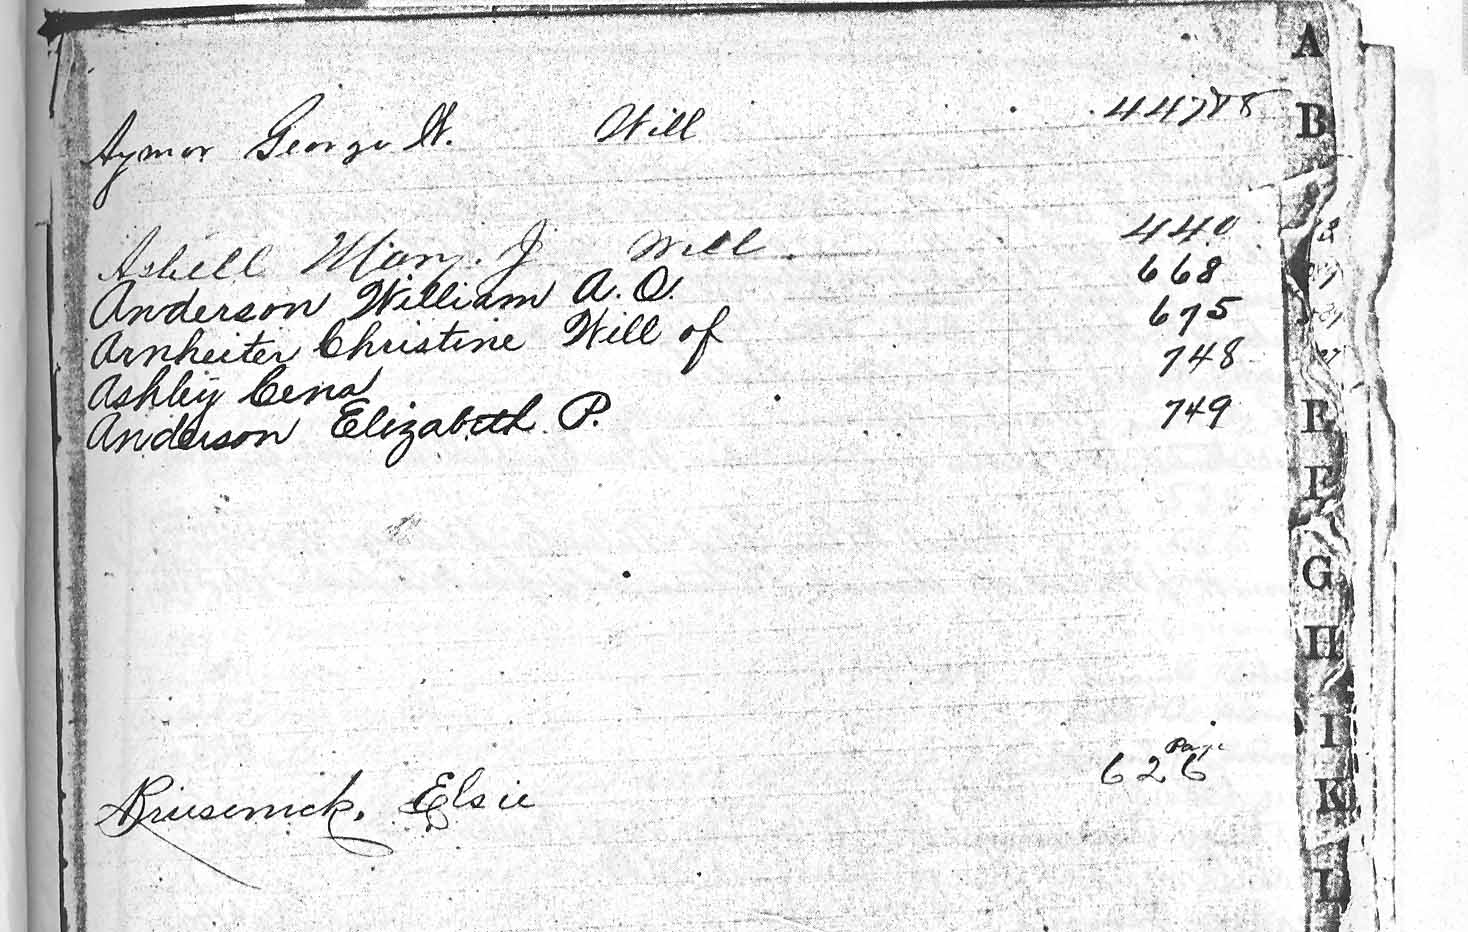 A
Aymar George W. Will
B
Asbell Mary. J Will. 440
Anderson William A. O. 668
Arnheiter Christine Will of 675
Ashley Cena 748
Anderson Elizabeth P. 749
F
G
H
I
Page
Elsie 626
K
L